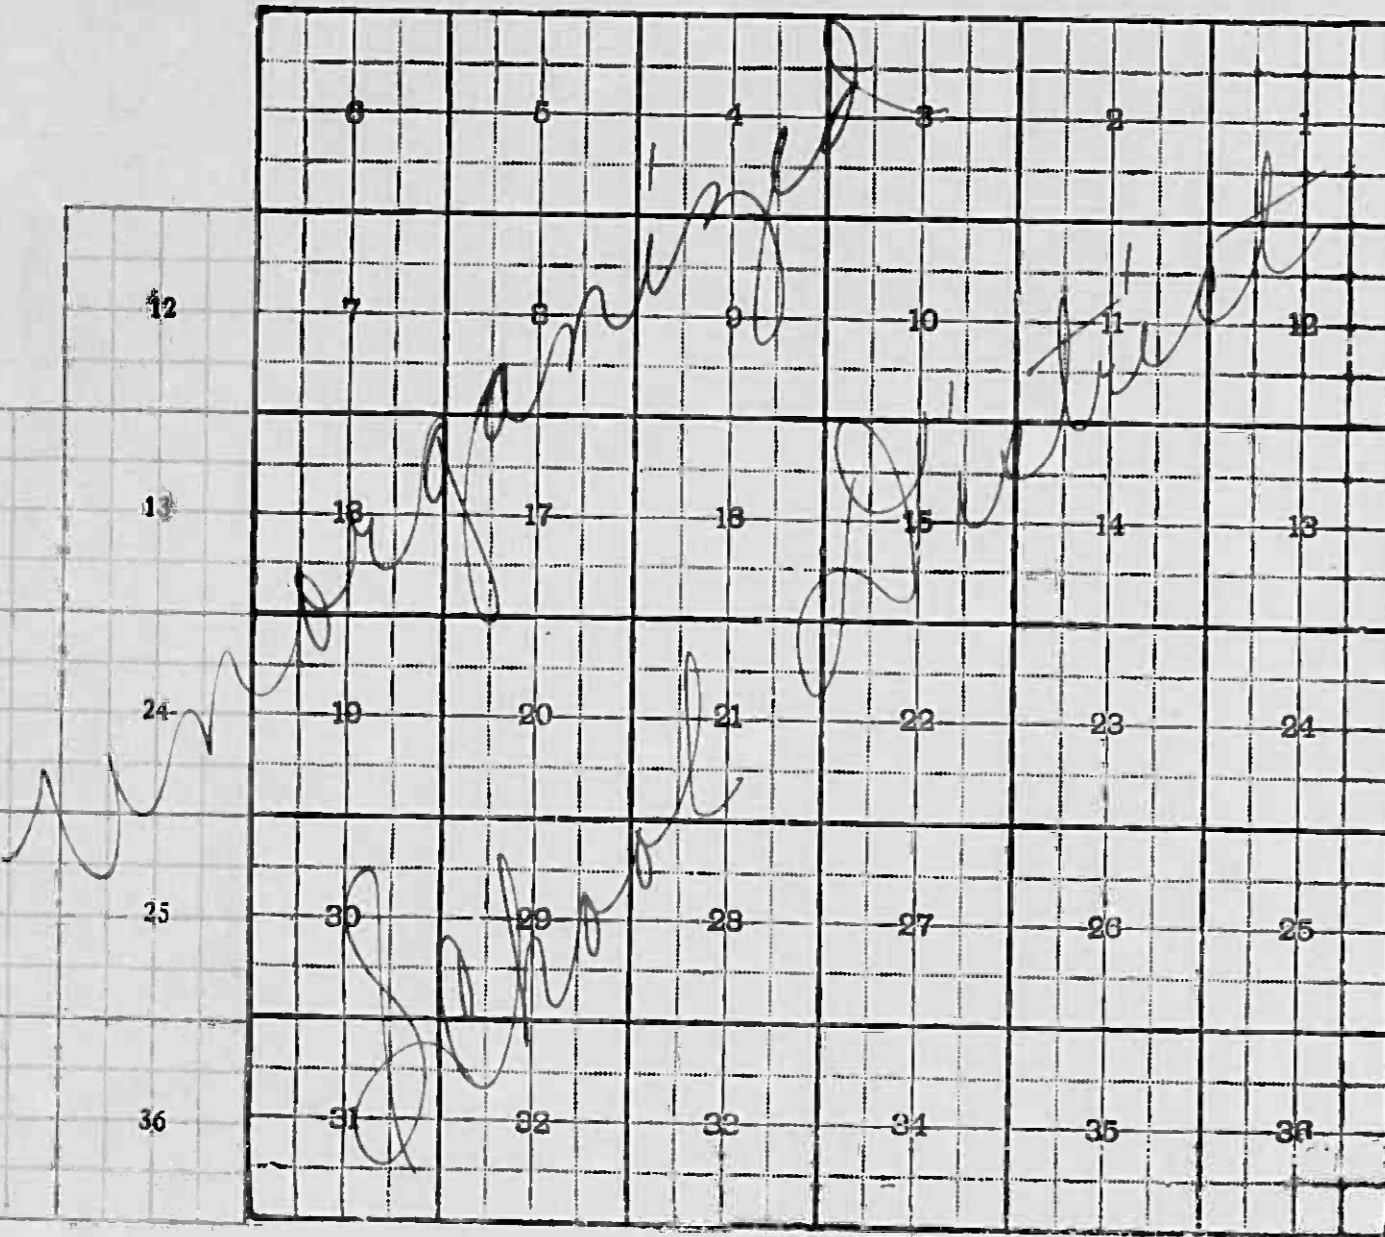 6 5 4 3 2 1
12 7 8 9 10 11 12
13 18 17 16 15 14 13
24 19 20 21 22 23 24
25 30 29 28 27 26 25
36 31 32 33 34 35 36
Unorganized
School District